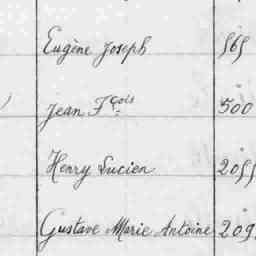 Eugène Joseph 565
Jean Fçois 500
Henry Lucien 2055
Gustave Marie Antoine 209